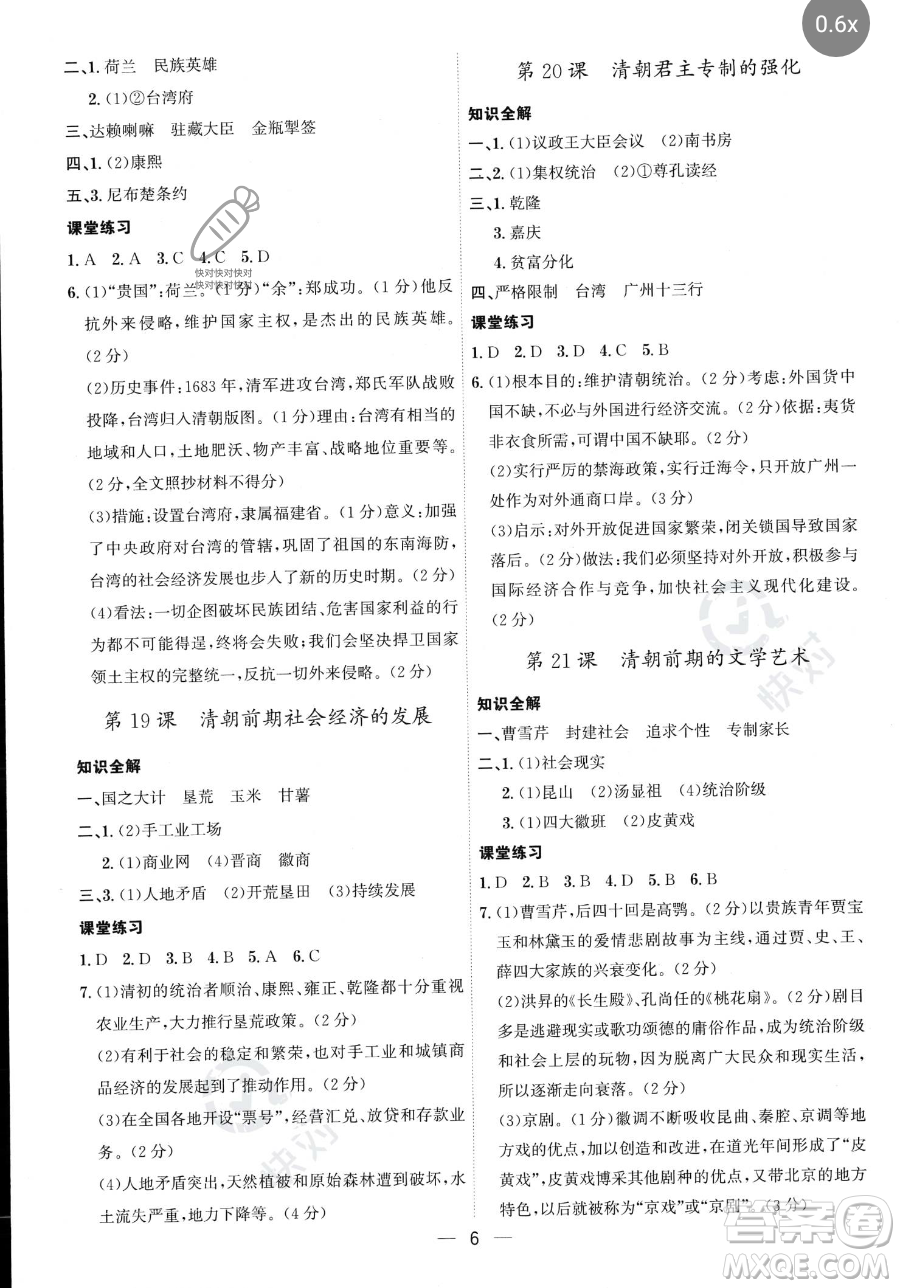 0.6x
二、1. 荷兰 民族英雄
2. (1)②台湾府
三、达赖喇嘛 驻藏大臣 金瓶掣签
四、1. (2)康熙
五、3. 尼布楚条约
课堂练习
1. A 2. A 3. C 4. C 5. D
快对快对快对
快对快对快对
6. (1)“贵国”:荷兰。(1 分)“余”:郑成功。(1 分)他反
抗外来侵略,维护国家主权,是杰出的民族英雄。
(2 分)
(2)历史事件:1683 年,清军进攻台湾,郑氏军队战败
投降,台湾归入清朝版图。(1 分)理由:台湾有相当的
地域和人口,土地肥沃、物产丰富、战略地位重要等。
(2 分,全文照抄材料不得分)
(3)措施:设置台湾府,隶属福建省。(1 分)意义:加强
了中央政府对台湾的管辖,巩固了祖国的东南海防,
台湾的社会经济发展开始了新的历史时期。(2 分)
(4)看法:一切企图破坏民族团结、国家利益的行
为都不可能得逞,终将会失败;我们会坚决捍卫国家
领土主权的完整统一,反对一切分裂行为。(2 分)
第 19 课 清朝前期社会经济的发展
知识全解
一、国之大计 垦荒 玉米 甘薯
二、1. (2)手工业工场
2. (1)商业网 (4)晋商 徽商
三、3. (1)人地矛盾 (2)开荒垦田 (3)持续发展
课堂练习
1. D 2. D 3. B 4. D 5. A 6. C
7. (1)清初的统治者顺治、康熙、雍正、乾隆都十分重视
农业生产,大力推行垦荒政策。(2 分)
(2)有利于社会的稳定和繁荣,也对手工业和城镇商
品经济的发展起到了推动作用。(2 分)
(3)在全国各地开设“票号”,经营汇兑、放贷和存款业
务。(2 分)
(4)人口大量增加,天然植被和原始森林遭到破坏,水
土流失严重,地力下降等。(2 分)
第 20 课 清朝君主专制的强化
知识全解
一、1. (1)议政王大臣会议 (2)南书房
二、1. (1)集权统治 (2)①尊孔读经
三、1. 乾隆
3. 嘉庆
4. 贫富分化
四、严格限制 台湾 广州十三行
课堂练习
1. D 2. D 3. D 4. C 5. B
6. (1)根本目的:维护清朝统治。(2 分)考虑:外国货中
国不缺,不必与外国进行经济交流。(2 分)依据:夷货
非衣食所需,可谓中国不缺耶。(2 分)
(2)实行严厉的禁海政策,实行迁海令,只开放广州一
处作为对外通商口岸。(3 分)
(3)启示:对外开放促进国家繁荣,闭关锁国导致国家
落后。(2 分)做法:我们必须坚持对外开放,积极参与
国际经济合作与竞争,加快社会主义现代化建设。
(2 分)
第 21 课 清朝前期的文学艺术
知识全解
一、曹雪芹 封建社会 追求个性 专制家长
二、1. (1)社会现实
2. (1)昆山 (2)汤显祖 (4)统治阶级
3. (1)四大徽班 (2)皮黄戏
课堂练习
1. D 2. B 3. B 4. D 5. B 6. B
7. (1)曹雪芹,后四十回是高鹗。(2 分)以贵族青年贾宝
玉和林黛玉的爱情悲剧为主线,通过贾、史、王、
薛四大家族的兴衰变化。(2 分)
(2)洪昇的《长生殿》、孔尚任的《桃花扇》。(2 分)剧目
多是逃避现实或歌功颂德的庸俗作品,成为统治阶级
和社会上层的玩物,因为脱离广大民众和现实生活,
所以逐渐走向衰落。(2 分)
(3)京剧。(1 分)徽调不断吸收昆曲、秦腔、京调等地
方戏的优点,加以创造和改进,在道光年间形成了“皮
黄戏”,皮黄戏博采其他剧种的优点,又带北京的地方
特色,以后就被称为“京戏”或“京剧”。(3 分)
快对
快对
6
答案圈
MXQE.COM